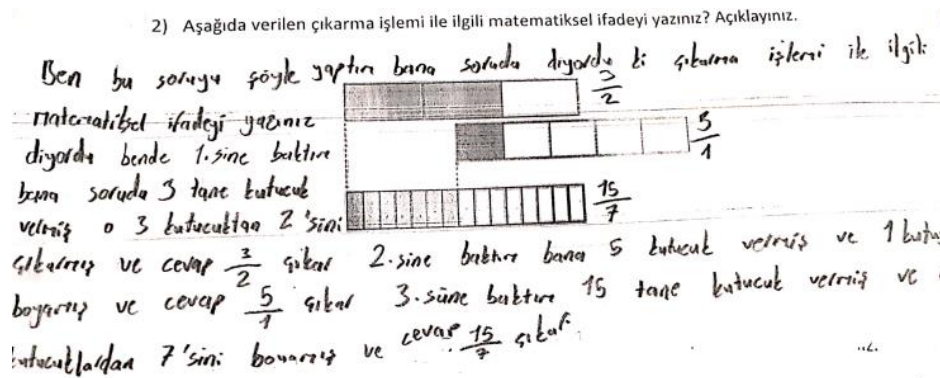 2) Aşağıda verilen çıkarma işlemi ile ilgili matematiksel ifadeyi yazınız? Açıklayınız.
Ben bu soruyu şöyle yaptım bana soruda diyordu ki çıkarma işlemi ile ilgili
matematiksel ifadeyi yazınız
3/2
diyordu bende 1.sine baktım
5/1
bana soruda 3 tane kutucuk
15/7
vermiş o 3 kutucuktan 2'sini
çıkarmış ve cevap 3/2 çıkar 2.sine baktım bana 5 kutucuk vermiş ve 1 kutu
boyamış ve cevap 5/1 çıkar 3.süne baktım 15 tane kutucuk vermiş ve
kutucuklardan 7'sini boyamış ve cevap 15/7 çıkar.